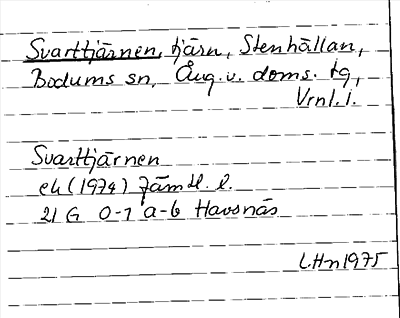 Svarttjärnen, tjärn, Stenhällan,
Bodums sn, Ång. v. doms. tg,
Vrnl. l.
Svarttjärnen
ek (1974) Jämtl. l.
21 G 0-1 a-b Havsnäs
LHn 1975